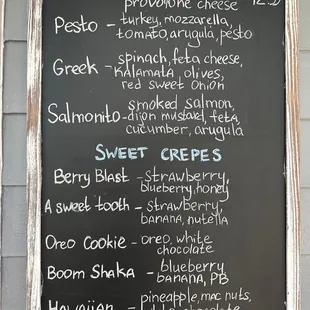 provolone cheese
Pesto - turkey, mozzarella,
tomato, arugula, pesto
Greek - spinach, feta cheese,
Kalamata olives,
red sweet onion
Salmonito - smoked salmon,
dijon mustard, feta,
cucumber, arugula
SWEET CREPES
Berry Blast - strawberry,
blueberry, honey
A sweet tooth - strawberry,
banana, nutella
Oreo Cookie - oreo, white
chocolate
Boom Shaka - blueberry
banana, PB
Hawaiian pineapple, mac nuts,
chocolate